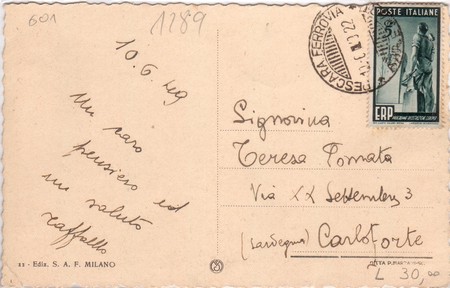 601
1289
PESCARA FERROVIA
POSTE ITALIANE
ERP
10.6.49
Un caro
pensiero ed
un saluto
Raffaello
Signorina
Teresa Pomata
Via XX Settembre 3
(Sardegna) Carloforte
L 30,00
22 - Ediz. S. A. F. MILANO